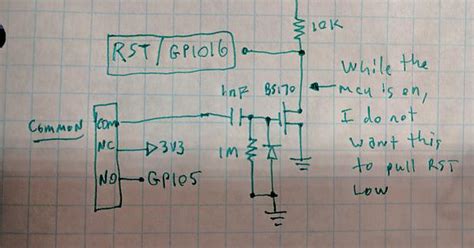 10K
RST/GPIO16
1nF
BS170
While the
mcu is on,
I do not
want this
to pull RST
Low
COMMON
COM
NC
3V3
1M
NO
GPIO5